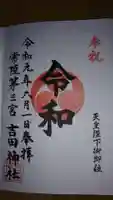 奉祝
天皇陛下御即位
令和
令和元年六月一日奉拝
常陸第三宮
吉田神社